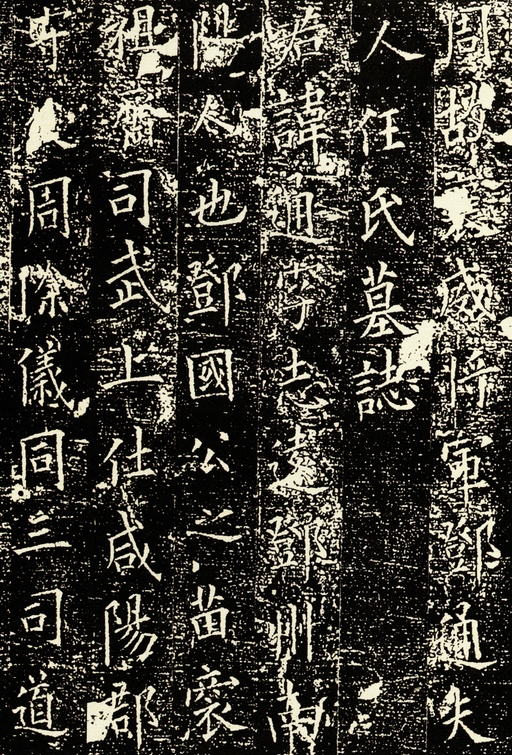 周故襄威將軍鄧通夫
人任氏墓誌
君諱通字志遠鄧州南
陽人也鄧國公之苗裔
祖司武上仕咸陽郡
守父周除儀同三司道